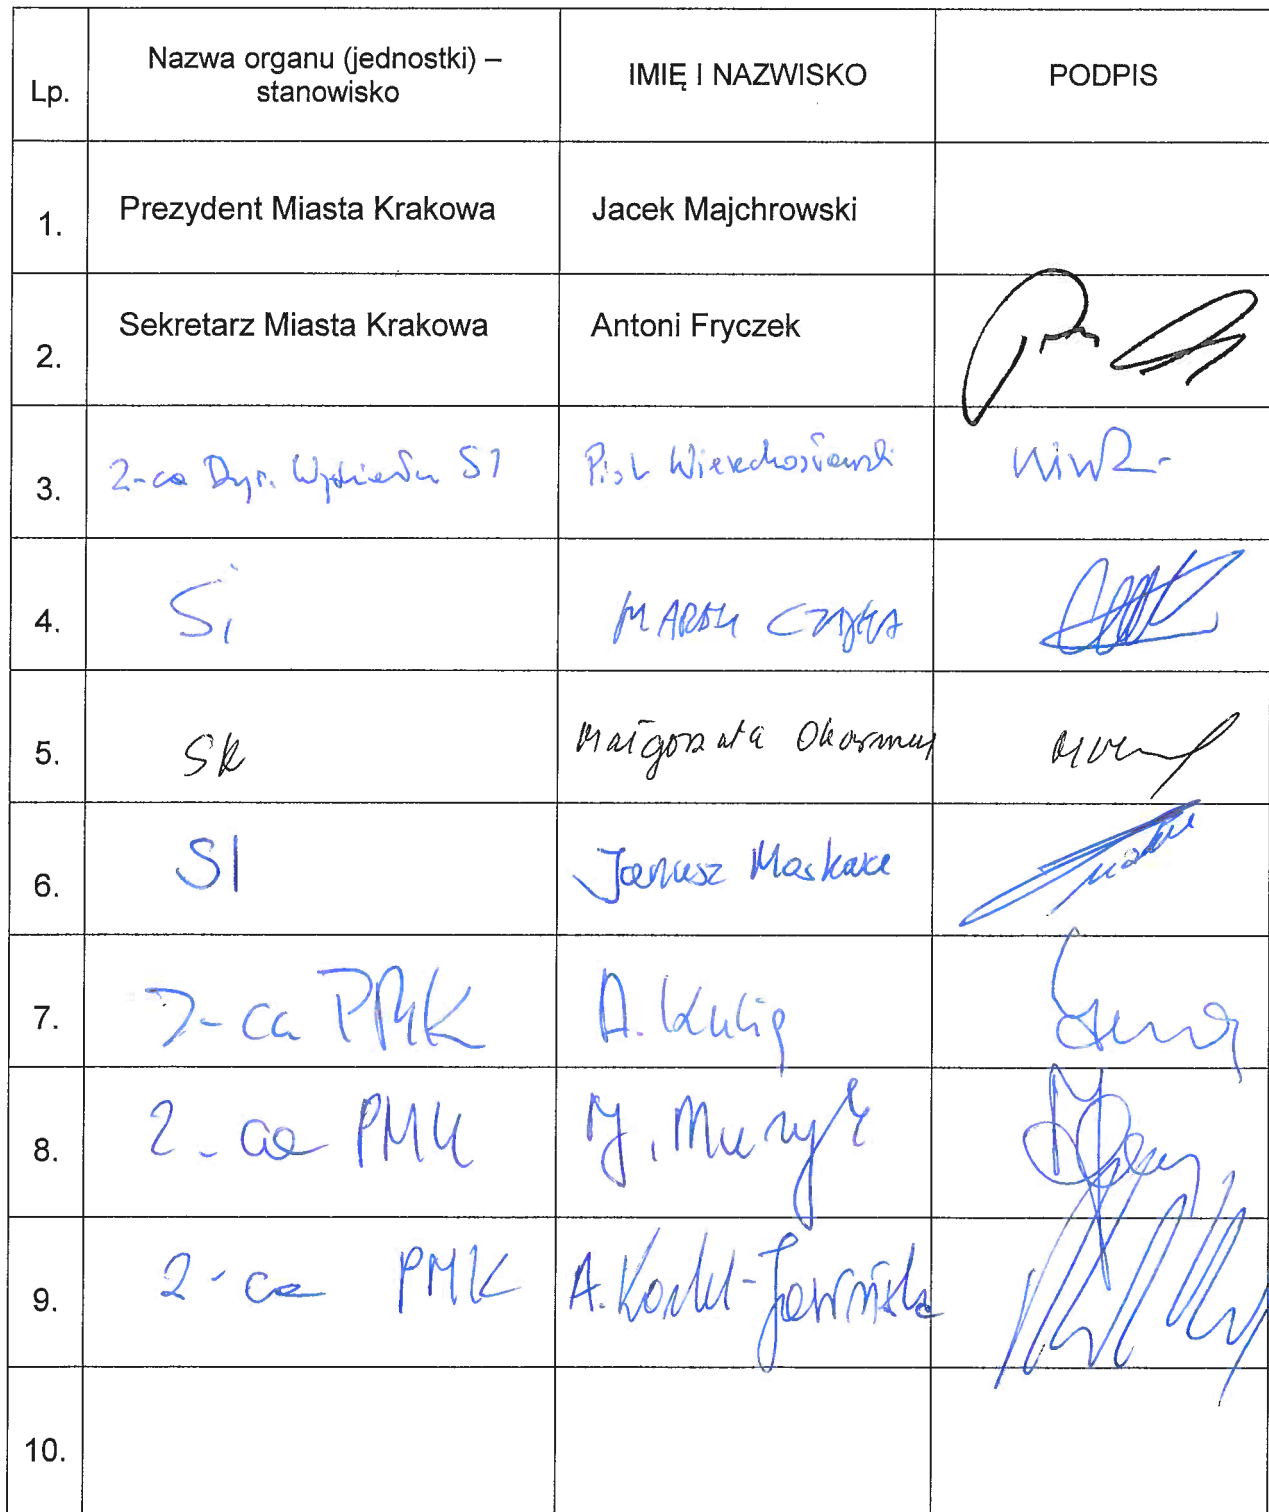 Lp.
Nazwa organu (jednostki) –
stanowisko
IMIĘ I NAZWISKO
PODPIS
1.
Prezydent Miasta Krakowa
Jacek Majchrowski
2.
Sekretarz Miasta Krakowa
Antoni Fryczek
3.
Z-ca Dyr. Wydziału SI
4.
SI
MAREK
5.
SK
Małgorzata Okarmus
6.
SI
Janusz
7.
Z-ca PMK
A. Kulig
8.
Z-ca PMK
J. Muzyk
9.
Z-ca PMK
A.
10.